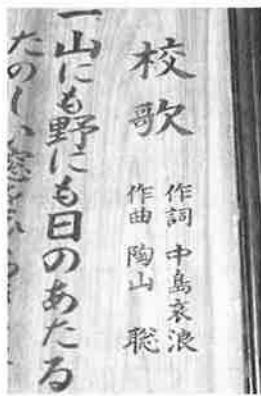 校歌
作詞 中島哀浪
作曲 陶山 聡
一 山にも野にも日のあたる
たのしい窓を